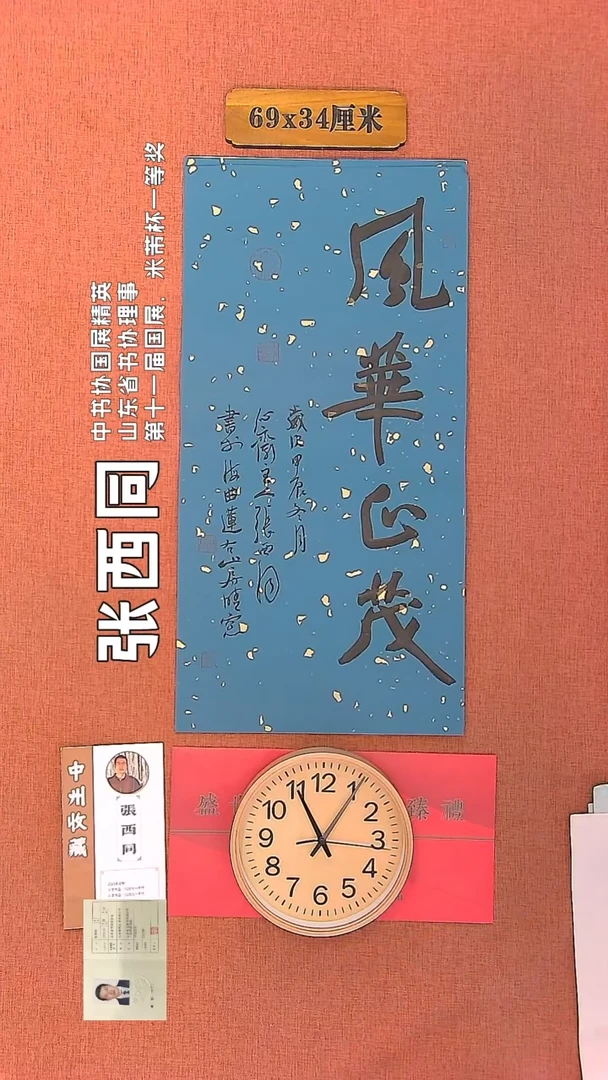 69x34厘米
風華正茂
歲次甲辰冬月
心齋主張西同
書於海曲蓮右山房晴窗
张西同
中书协国展精英
山东省书协理事
第十一届国展、米芾杯一等奖
張西同
盛世
臻禮
12
1
2
3
4
5
6
7
8
9
10
11